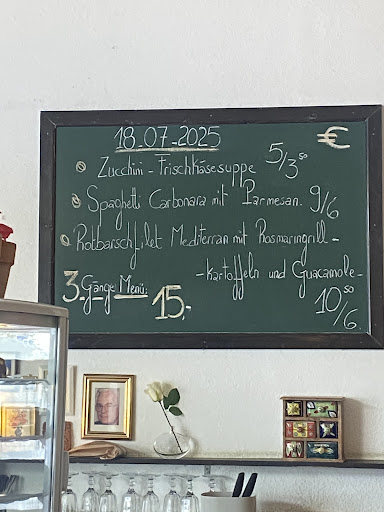 18-07-2025 €
Zucchini-Frischkäsesuppe 5/3,50
Spaghetti Carbonara mit Parmesan. 9/6
Rotbarschfilet Mediterran mit Rosmaringrill-
-kartoffeln und Guacamole- 10,50/6.
3 Gänge Menü: 15,-